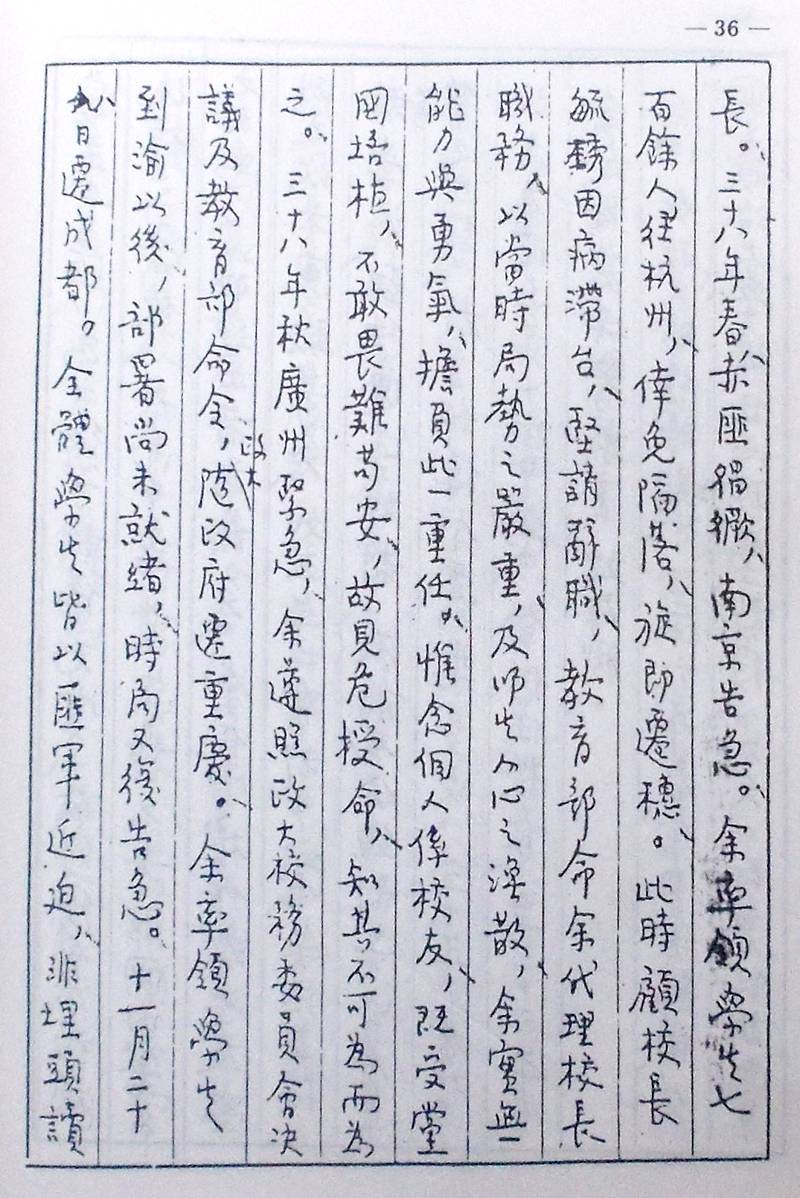 — 36 —
長。三十八年春，赤匪猖獗，南京告急。余率領學生七
百餘人往杭州，倖免隔落，旋即遷穗。此時顧校長
毓琇因病滯台，堅請辭職，教育部命余代理校長
職務，以當時局勢之嚴重，及師生人心之渙散，余實無
能力與勇氣，擔負此一重任。惟念個人係校友，既受黨
國培植，不敢畏難苟安，故見危授命，知其不可為而為
之。三十八年秋廣州緊急，余遵照政大校務委員會決
議及教育部命令，隨政府遷重慶。余率領學生
政大
到渝以後，部署尚未就緒，時局又復告急。十一月二十
日遷成都。全體學生皆以匪軍近迫，非埋頭讀